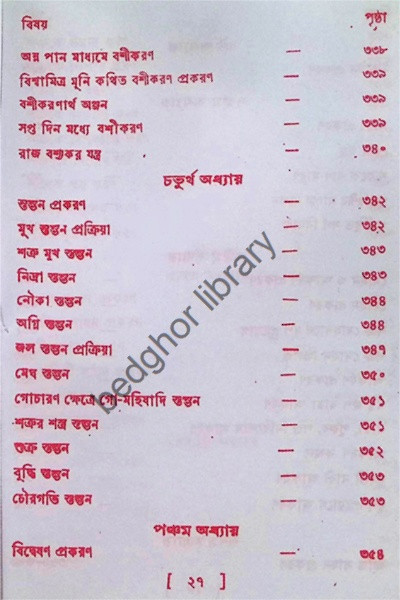 বিষয় পৃষ্ঠা
অন্ন পান মাধ্যমে বশীকরণ — ৩৩৮
বিশ্বামিত্র মুনি কথিত বশীকরণ প্রকরণ — ৩৩৯
বশীকরণার্থ অঞ্জন — ৩৩৯
সপ্ত দিন মধ্যে বশীকরণ — ৩৩৯
রাজ বশ্যকর যন্ত্র — ৩৪০
চতুর্থ অধ্যায়
স্তম্ভন প্রকরণ — ৩৪২
মুখ স্তম্ভন প্রক্রিয়া — ৩৪২
শত্রু মুখ স্তম্ভন — ৩৪৩
নিদ্রা স্তম্ভন — ৩৪৩
নৌকা স্তম্ভন — ৩৪৪
অগ্নি স্তম্ভন — ৩৪৪
জল স্তম্ভন প্রক্রিয়া — ৩৪৭
মেঘ স্তম্ভন — ৩৫০
গোচারণ ক্ষেত্রে গো-মহিষাদি স্তম্ভন — ৩৫১
শত্রুর শস্ত্র স্তম্ভন — ৩৫১
শুক্র স্তম্ভন — ৩৫২
বুদ্ধি স্তম্ভন — ৩৫৩
চৌরগতি স্তম্ভন — ৩৫৩
পঞ্চম অধ্যায়
বিদ্বেষণ প্রকরণ — ৩৫৪
[ ২৭ ]
bedghor library